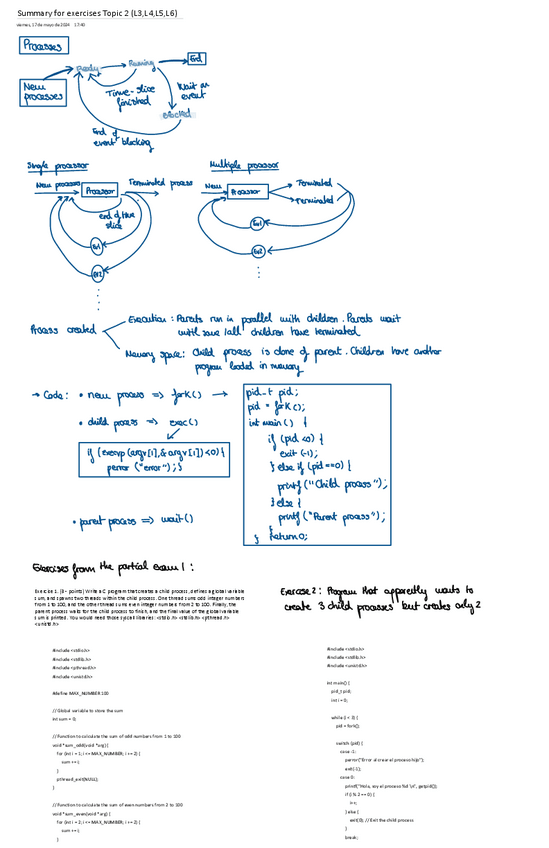 Summary for exercises Topic 2 (L3,L4,L5,L6)
viernes, 17 de mayo de 2024 17:40
Processes
Ready
Running
End
New
processes
Time-slice
finished
Wait an
event
Blocked
End of
event blocking
Single processor
Multiple processor
New processes
Processor
Terminated process
New
Processor
Terminated
Terminated
end of time
slice
Ev1
Ev2
Ev1
Ev2
Process created
Execution: Parents run in parallel with children. Parents wait
until some/all children have terminated
Memory space: Child process is clone of parent. Children have another
program loaded in memory
→ Code: • new process => fork() →
• child process => exec()
if (execvp(argv[1],&argv[1])<0){
perror ("error");}
• parent process => wait()
pid_t pid;
pid = fork();
int main() {
if (pid <0) {
exit (-1);
} else if (pid ==0) {
printf ("Child process");
} else {
printf ("Parent process");
} return 0;
Exercises from the partial exam 1:
Exercise 1. [3- points] Write a C program that creates a child process, defines a global variable
sum, and spawns two threads within the child process. One thread sums odd integer numbers
from 1 to 100, and the other thread sums even integer numbers from 2 to 100. Finally, the
parent process waits for the child process to finish, and the final value of the global variable
sum is printed. You would need those syscall libraries: <stdio.h> <stdlib.h> <pthread.h>
<unistd.h>
Exercise 2: Program that apparently wants to
create 3 child processes but creates only 2
#include <stdio.h>
#include <stdlib.h>
#include <pthread.h>
#include <unistd.h>
#define MAX_NUMBER 100
// Global variable to store the sum
int sum = 0;
// Function to calculate the sum of odd numbers from 1 to 100
void *sum_odd(void *arg) {
for (int i = 1; i <= MAX_NUMBER; i += 2) {
sum += i;
}
pthread_exit(NULL);
}
// Function to calculate the sum of even numbers from 2 to 100
void *sum_even(void *arg) {
for (int i = 2; i <= MAX_NUMBER; i += 2) {
sum += i;
}
#include <stdio.h>
#include <stdlib.h>
#include <unistd.h>
int main() {
pid_t pid;
int i = 0;
while (i < 3) {
pid = fork();
switch (pid) {
case -1:
perror("Error al crear el proceso hijo");
exit(-1);
case 0:
printf("Hola, soy el proceso %d \n", getpid());
if (i % 2 == 0) {
i++;
} else {
exit(0); // Exit the child process
}
break;